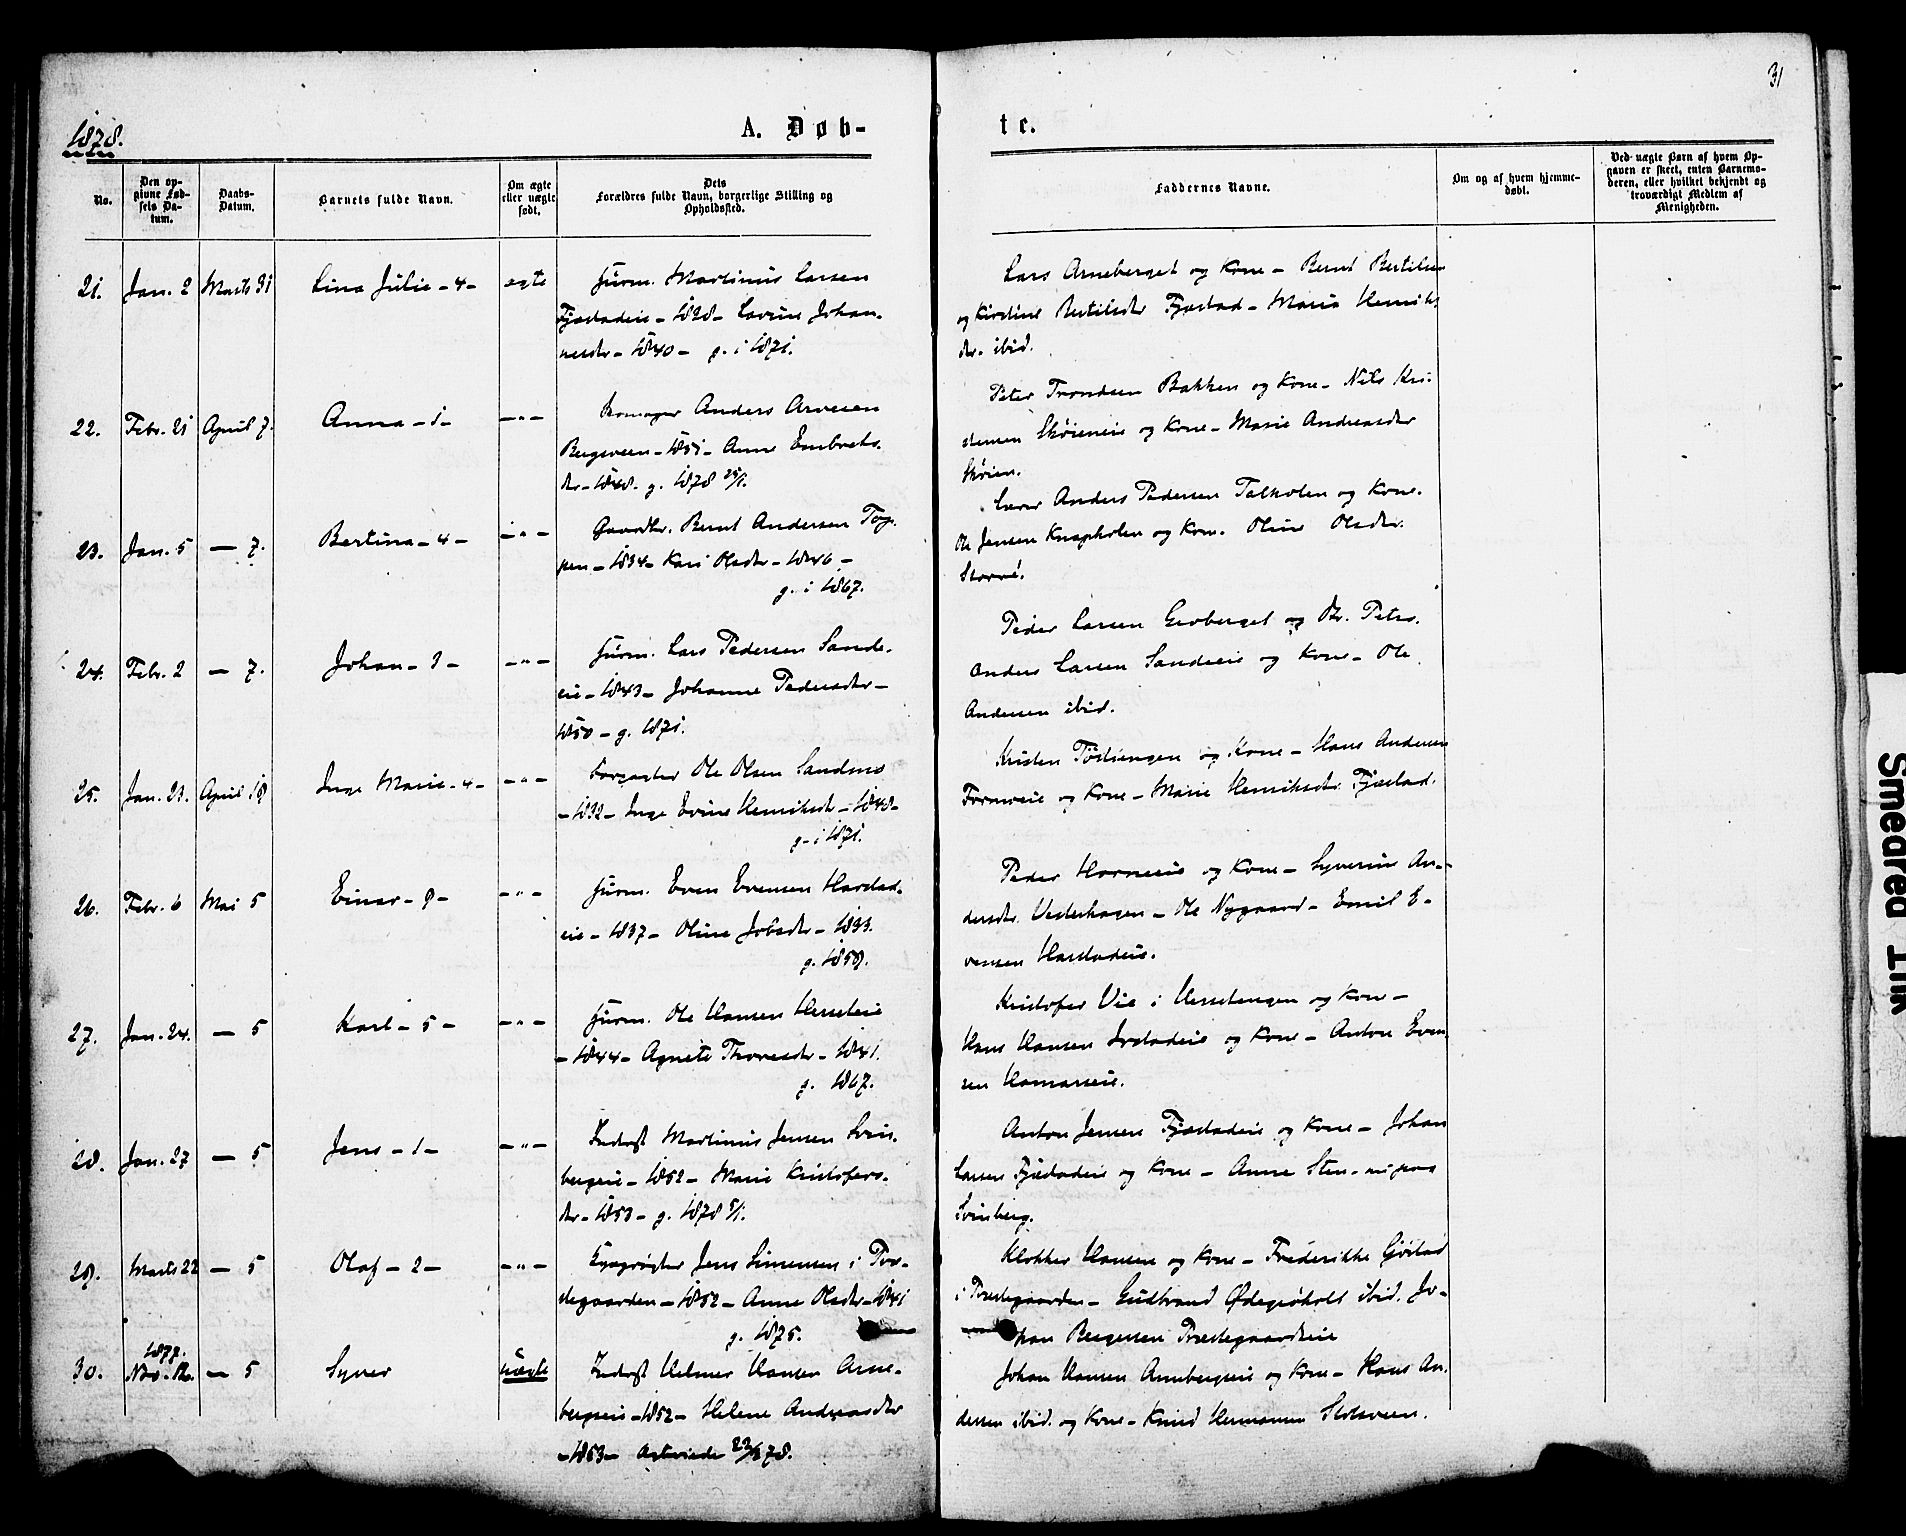 31
1878.
A. Døb-
te.
No.
Den op-
givne Fød-
sels Da-
tum.
Daabs-
Datum.
Barnets fulde Navn.
Om ægte
eller uægte
født.
Dets
Forældres fulde Navn, borgerlige Stilling og
Opholdssted.
Faddernes Navne.
Om og af hvem hjemme-
døbt.
Ved uægte Barn af hvem Op-
gaven er skeet, enten Barnemo-
deren, eller hvilket bekjendt og
troværdigt Medlem af
Menigheden.
21. Jan. 2 Marts 31 Lina Julie - 4 - egte
Husm. Martinus Larsen
Fjæstadeie - 1828 - Lovise Johan-
nesdtr - 1840 - g. i 1871.
Lars Arneberget og Kone - Bernt Bertilsen
og Kirstine Bertilsdtr Fjæstad - Maria Henriks
dtr. ibid.
22. Febr. 21 April 7. Anna - 1 - - " -
Skomager Anders Arvesen
Bergsveen - 1851 - Anne Embrets-
dtr - 1848. g. 1878 25/1.
Peter Trondsen Bakken og Kone - Nils Kri-
stensen Skøieneie og Kone - Marie Andreasdtr
Skøien.
23. Jan. 5 - 7. Bertina - 4 - - " -
Gaardbr. Bernt Andersen Top-
pen - 1834 - Kari Olsdtr - 1846 -
g. i 1867.
Lærer Anders Pedersen Talholen og Kone.
Ole Jensen Knapholen og Kone. Oline Olsdtr.
24. Febr. 2 - 7. Johan - 3 - - " -
Husm. Lars Pedersen Sande-
eie - 1843 - Johanne Pedersdtr -
1850 - g. 1871.
Peder Larsen Groberget og Dtr. Petra.
Anders Larsen Sandeeie og Kone - Ole
Andersen ibid.
25. Jan. 23. April 18 Inge Marie - 4 - - " -
Ole Olsen Sandnes
- 1832 - Inge Evine Henriksdtr - 1848 -
g. i 1871.
Kristen Tødsengen og Kone - Hans Andersen
og Kone - Marie Henriksdtr. Fjæstad.
26. Febr. 6 Mai 5 Einar - 9 - - " -
Husm. Even Evensen Harstad-
eie - 1837 - Oline Jobsdtr - 1833.
g. 1858.
Peder Horneeie og Kone - Syverine An-
dersdtr. Vesterhagen - Ole Nygaard - Emil E-
vensen Harstadeie.
27. Jan. 24. - 5 Karl - 5 - - " -
Husm. Ole Hansen Hersteie
- 1844 - Agnete Thoresdtr - 1841.
g. 1867.
Kristofer Vie i Herstengen og Kone -
Hans Hansen og Kone - Anton Even-
sen Hamarseie.
28. Jan. 27 - 5 Jens - 1 - - " -
Inderst Martinus Jensen Svin-
bergeie - 1852 - Marie Kristofers-
dtr - 1853 - g. 1878 5/1.
Anton Jensen Fjæstadeie og Kone - Johan
Larsen Fjæstadeie og Kone - Anne Sten -
Svinberg.
29. Marts 22 - 5 Olaf - 2 - - " -
Jens Simensen i Præ-
stegaarden - 1852 - Anne Olsdtr - 1841
g. 1875.
Klokker Hansen og Kone - Frederikke Gjøstad
i Præstegaarden - Gulbrand Ødegaard ibid. Jo-
han Bergersen Præstegaardseie
30. 1877. Nov. 12. - 5 Syver uægte
Inderst Helmer Hansen Arne-
bergseie - 1852 - Helene Andreasdtr
- 1853 - 23/3 78.
Johan Hansen Arnebergseie og Kone - Hans An-
dersen ibid. og Kone - Knud Hermansen Slotsveen.
Smeared Ink